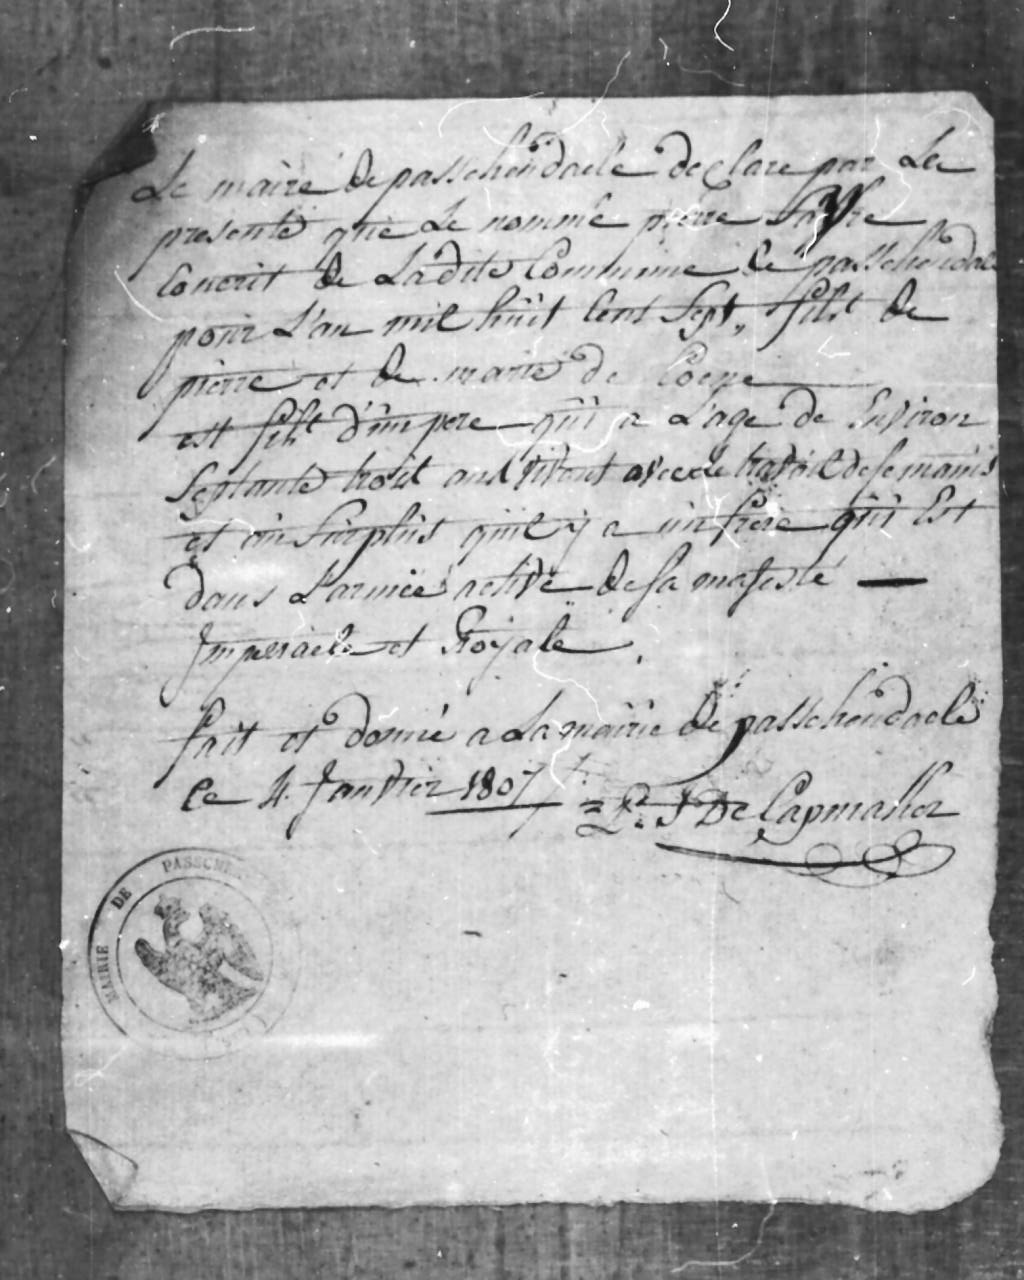 Le maire de passchendaele declare par Le
presente que Le nommé pierre
Concrit de Ladite Commune de passchendale
pour L'an mil huit Cent Sept, fils de
pierre et de marie de
est fils d'un pere qui a L'age de Environ
Septante trois ans vivant avec le travail de se mains
et au Surplus qu'il y a un frere qui Est
dans L'armée active de Sa majesté —
Imperiaele et Royale.
fait et donné a La mairie de passchendaele
ce 4 Janvier 1807
MAIRIE DE